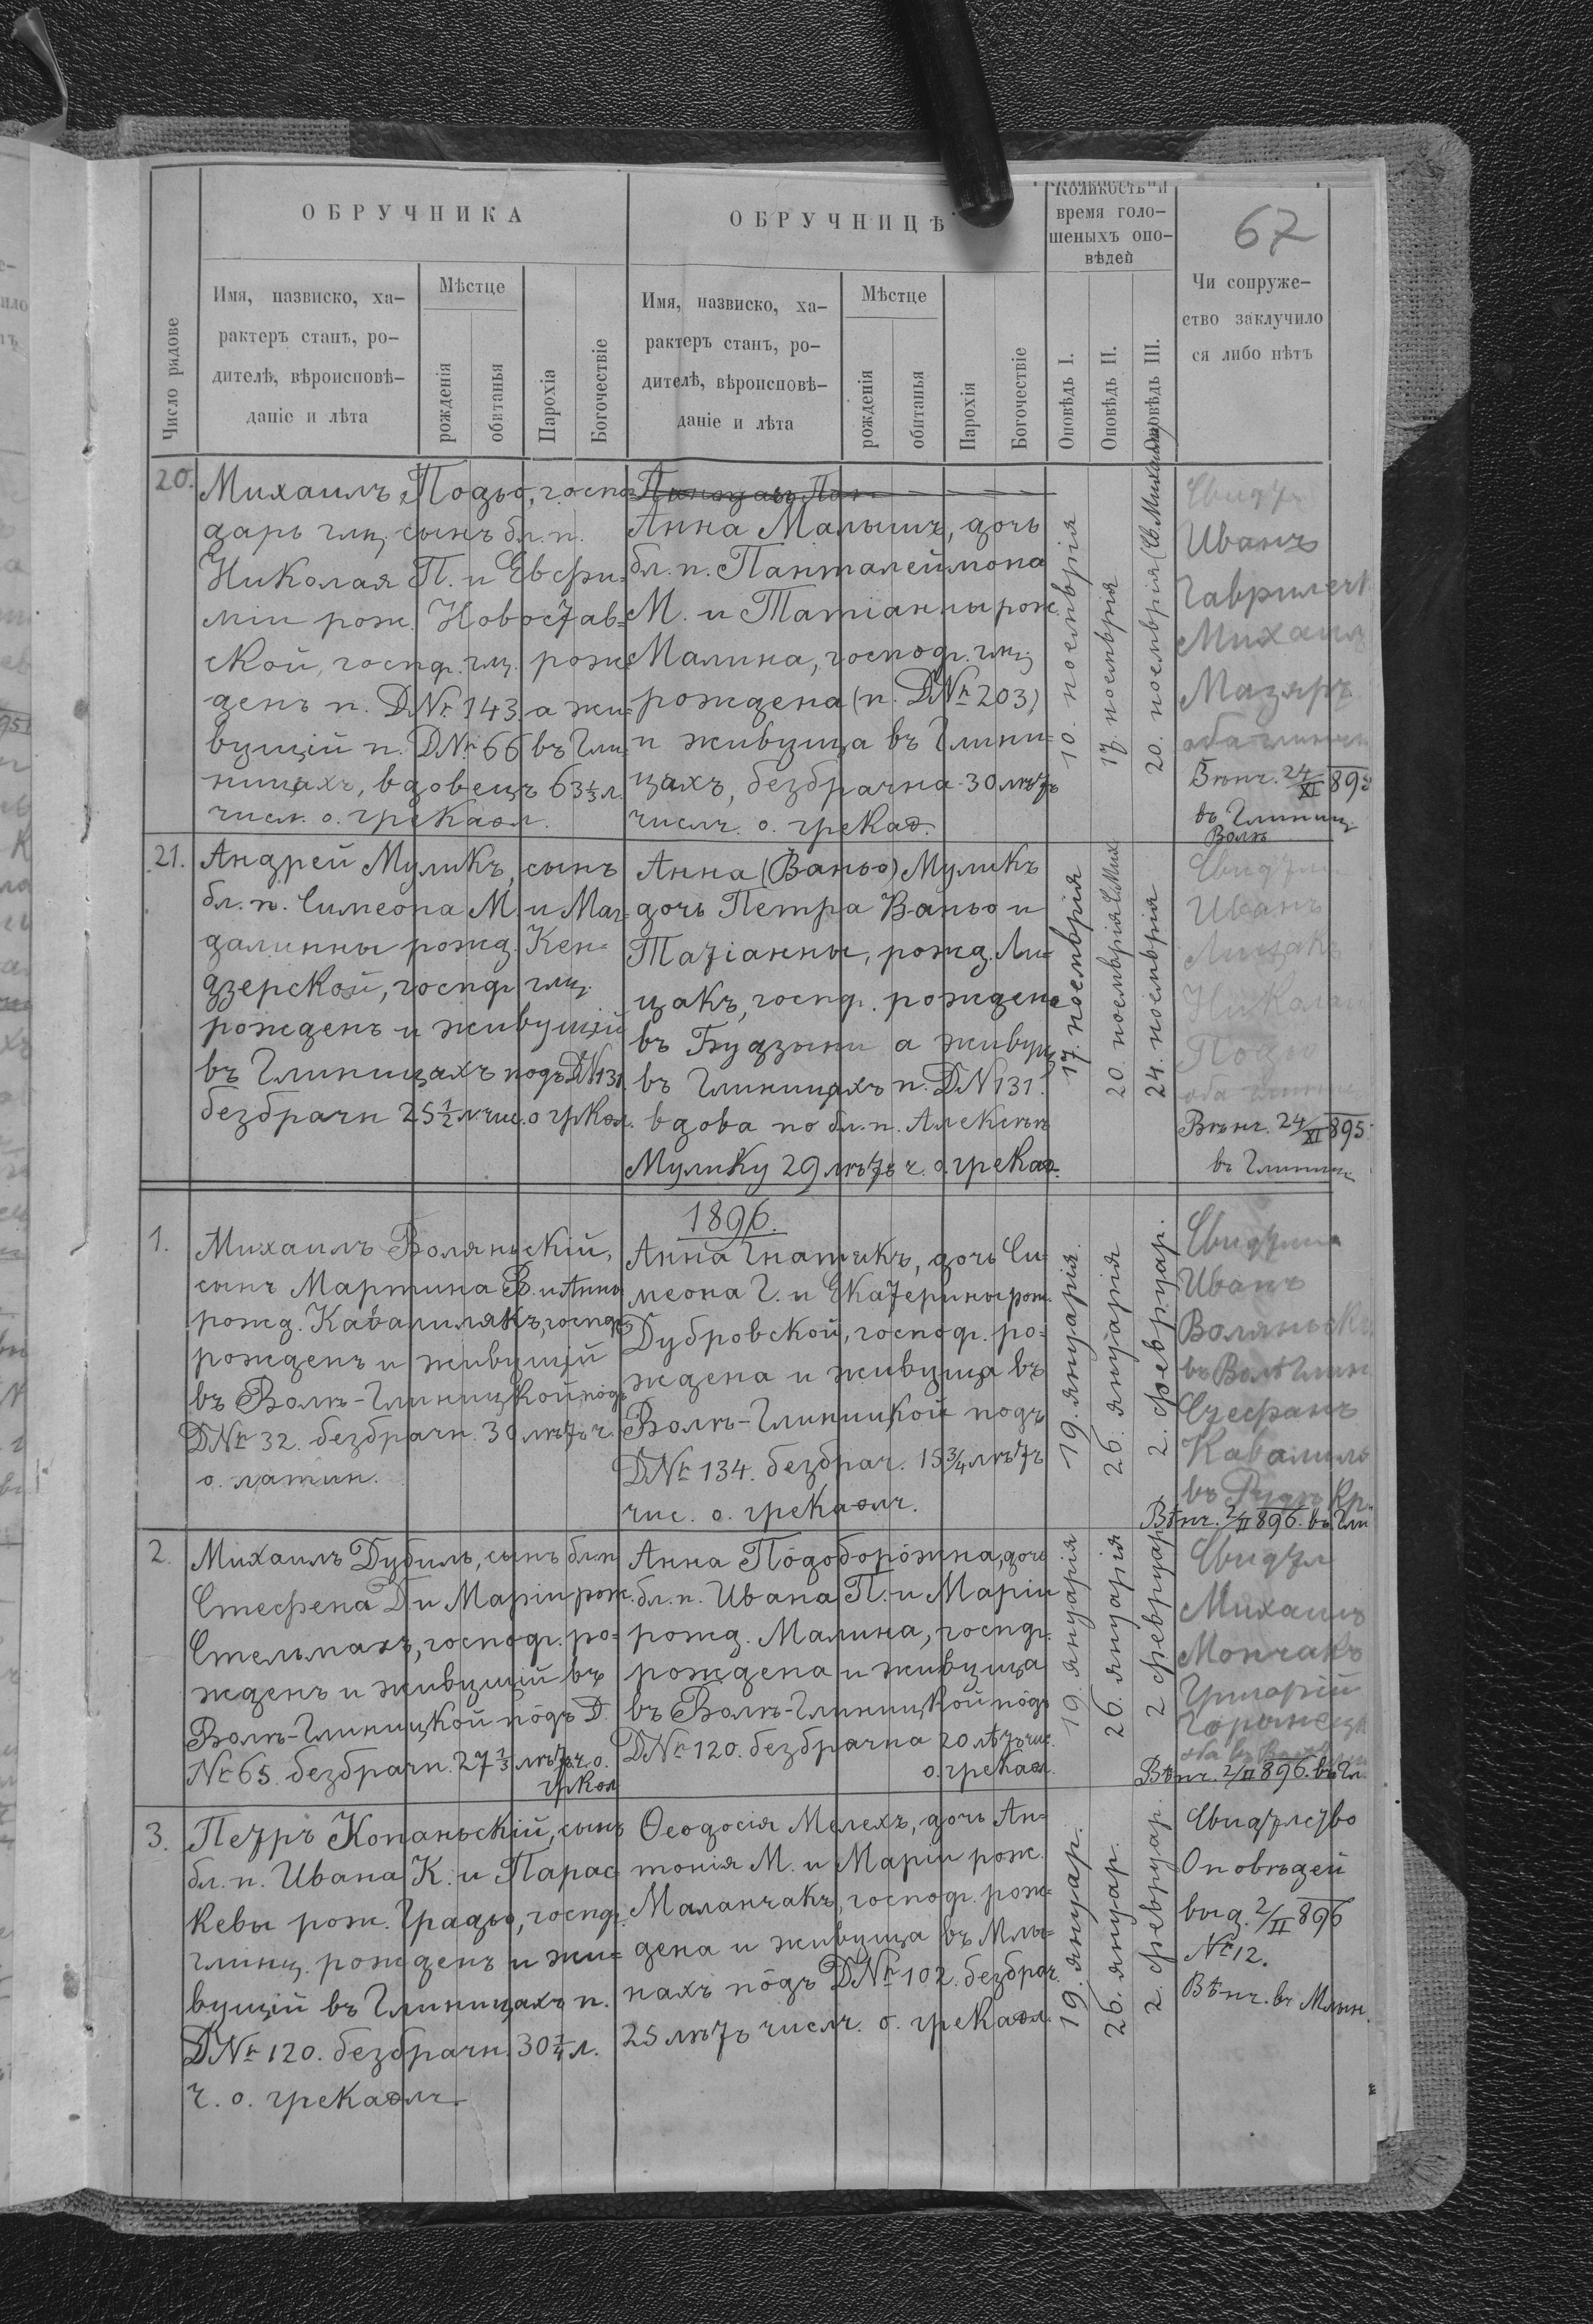 67
ОБРУЧНИКА
ОБРУЧНИЦѢ
Коликость и
время голо-
шеныхъ опо-
вѣдей
Чи сопруже-
ство заключило
ся либо нѣтъ
Число рядове
Имя, назвиско, ха-
рактеръ станъ, ро-
дителѣ, вѣроисповѣ-
даніе и лѣта
Мѣстце
рожденія
обитанья
Парохіа
Богочестіе
Имя, назвиско, ха-
рактеръ станъ, ро-
дителѣ, вѣроисповѣ-
даніе и лѣта
Мѣстце
рожденія
обитанья
Парохія
Богочестіе
Оповѣдь I.
Оповѣдь II.
Оповѣдь III.
20.
Михаилъ Подьо, госпо-
дарь глц. сынъ бл. п.
Николая П. и Евфи-
міи рож. Новостав-
ской, госпд. глц. рож-
денъ п. DNr. 143 а жи-
вущій п. DNr 66 въ Гли-
ницахъ, вдовецъ 63⅓ л.
числ. о. грекаѳл.
Анна Малышъ, дочь
бл. п. Панталеймона
М. и Татіанны рож
Малина, господ. глц.
рождена (п. DNr 203)
и живуща въ Глини-
цахъ, безбрачна 30 лѣтъ
числ. о. грекаѳ.
10. ноемврія
17. ноемврія
20. ноемврія (Св. Михаила)
Свидт
Иванъ
Гаврилечк
Михаил
Мазяръ
оба глинич
Вѣнч. 24/XI 895
въ Глиниц.
21.
Андрей Муликъ, сынъ
бл. п. Симеона М. и Маг-
далинны рожд. Кен-
дзерской, госпд. глц.
рожденъ и живущій
въ Глиницахъ подъ DN 131
безбрачн 25½ л. чис. о гркаѳл.
Анна (Ваньо) Муликъ
дочь Петра Ваньо и
Татіанны, рожд. Ли-
цакъ, госпд. рождена
въ Будзыни а живущ
въ Глиницахъ п. DN 131.
вдова по бл. п. Алексѣѣ
Мулику 29 лѣтъ ч. о. грекаѳ.
17. ноемврія
20. ноемврія Св Мих
24. ноемврія
Иванъ
Лицакъ
Николай
Подьо
Вѣнч. 24/XI 895
въ Глиниц
1896.
1.
Михаилъ Воляньскій,
сынъ Мартина В. и Анны
рожд. Кавалилякъ, госпдр
рожденъ и живущій
въ Волѣ-Глиницкой подъ
DNr 32. безбрачн. 30 лѣтъ ч.
о. латин.
Анна Гнатикъ, дочь Си-
меона Г. и Екатерины рож.
Дубровской, господ. ро-
ждена и живуща въ
Волѣ-Глиницкой подъ
DNr 134. безбрач. 15¾ лѣтъ
чис. о. грекаѳлч.
19. януарія.
26. януарія
2. февруар.
Иванъ
Воляньск
въ Волѣ Глин
Стефанъ
Кавалиль
Вѣнч. 2/II 896. въ Гли
2.
Михаилъ Дубиль, сынъ бл. п
Стефена Д и Маріи рож.
Стельмахъ, господ. ро-
жденъ и живущій въ
Волѣ-Глиницкой подъ D.
Nr 65. безбрачн. 27⅓ лѣтъ ч. о.
гркаѳл
Анна Подоброжна, дочь
бл. п. Ивана П. и Маріи
рожд. Малина, госпд.
рождена и живуща
въ Волѣ-Глиницкой подъ
DNr 120. безбрачна 20 лѣтъ чис.
о. грекаѳл.
19. януарія
26. януарія
2 февруар
Свидтл
Михаилъ
Мончакъ
Григорій
Вѣнч. 2/II 896. въ Гл.
3.
Петръ Копаньскій, сынъ
бл. п. Ивана К. и Парас-
кевы рож. Градьо, госпд.
глинц. рожденъ и жи-
вущій въ Глиницахъ п.
DNr 120. безбрачн. 30¼ л.
ч. о. грекаѳлч.
Ѳеодосія Мелехъ, дочь Ан-
тонія М. и Маріи рож.
Маланчакъ, господ. рож-
дена и живуща въ Млы-
нахъ подъ DNr 102. безбрач.
25 лѣтъ числч. о. грекаѳл.
19. януар.
26. януар.
2. февруар.
Свидтлство
Оповѣдей
выд. 2/II 896
Nr 12.
Вѣнч. въ Млын.